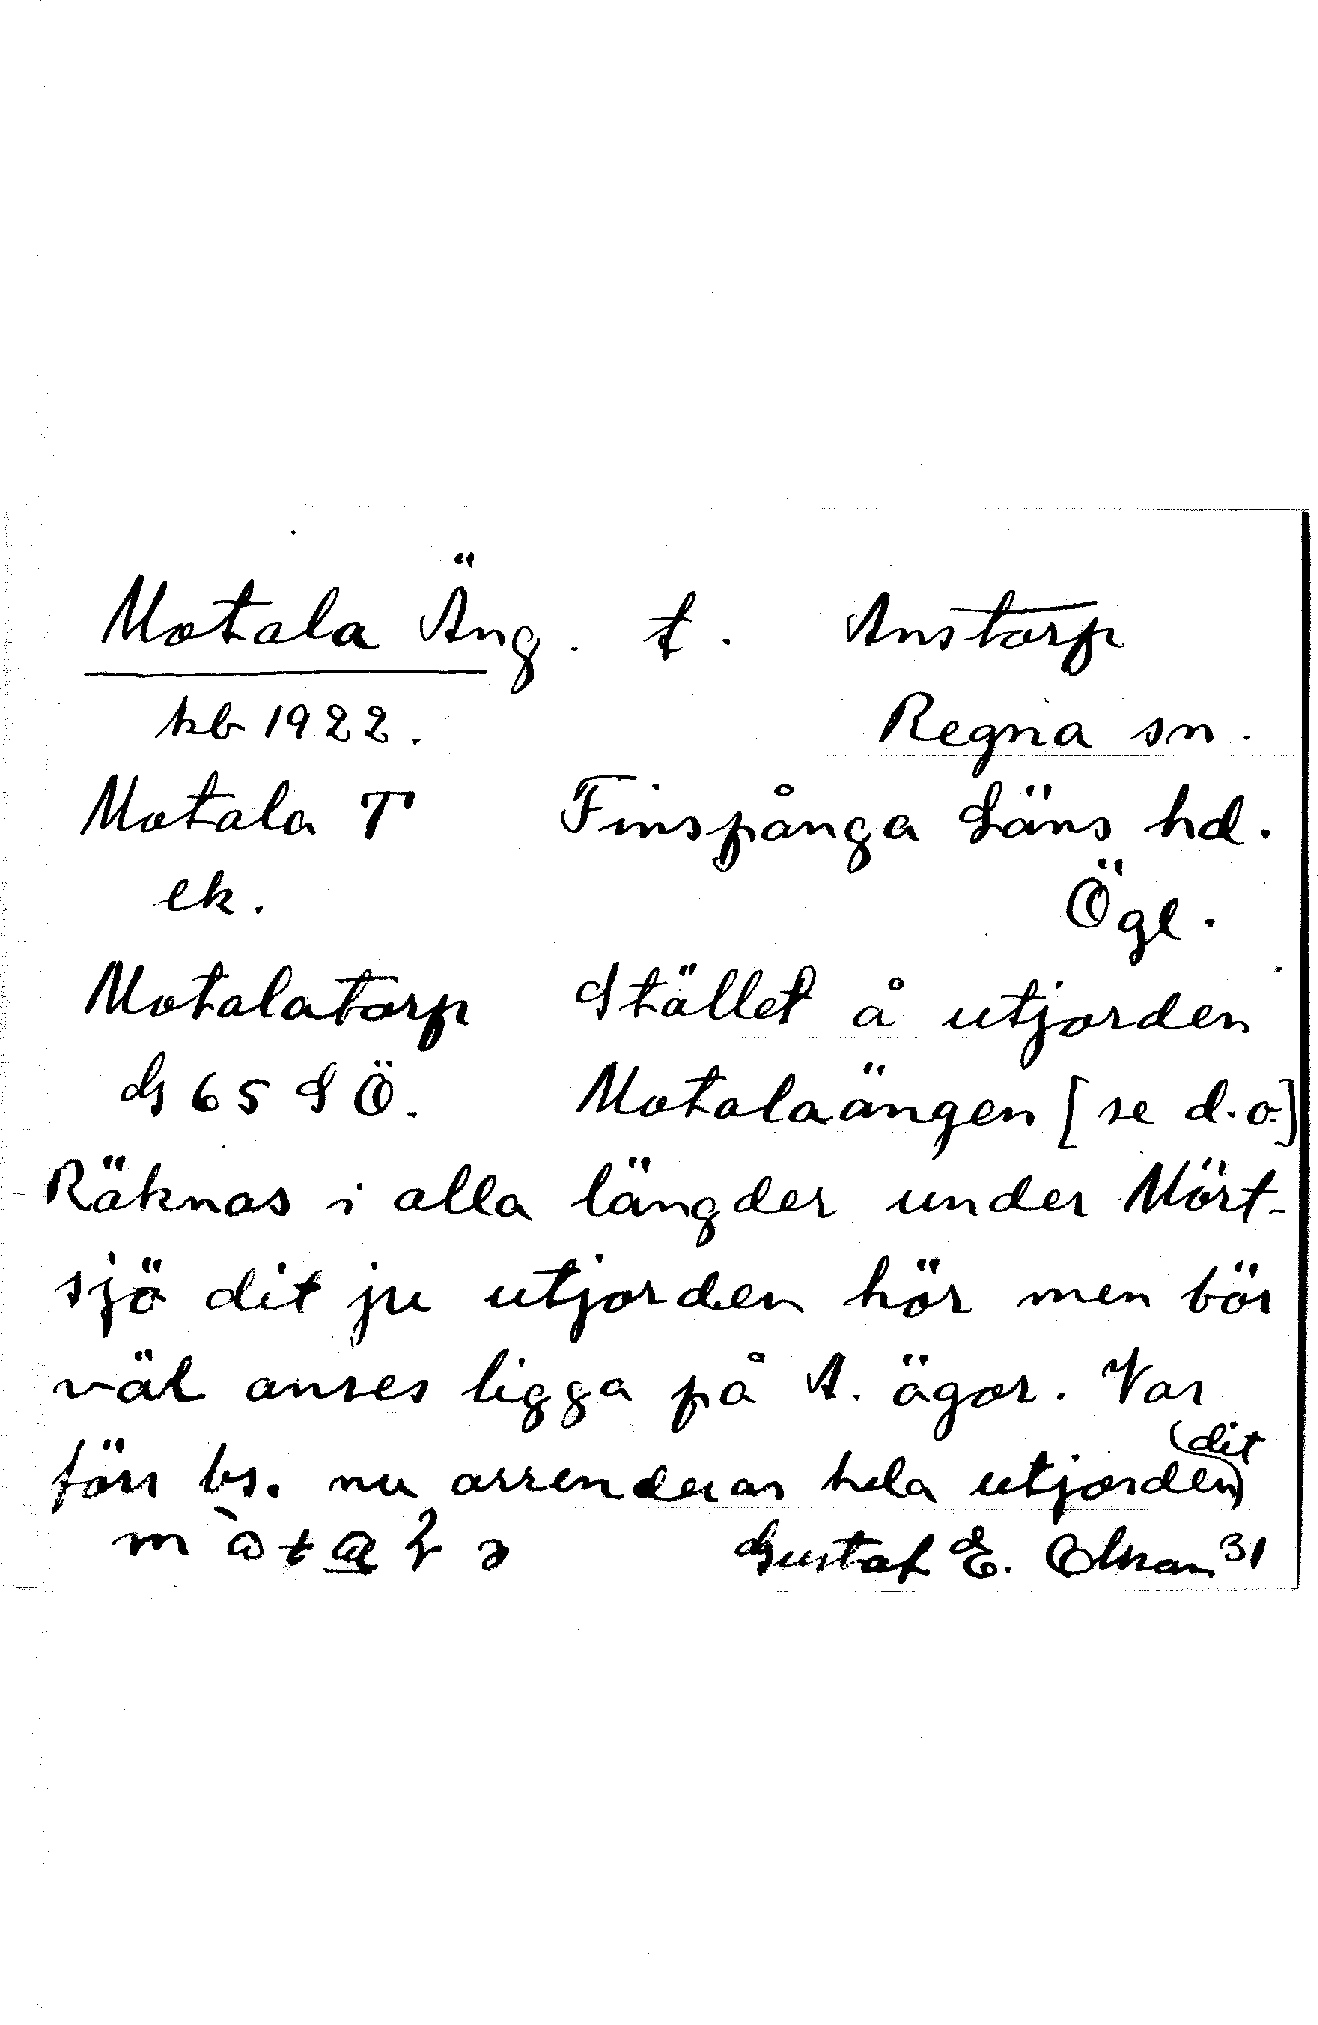 Motala Äng. t. Anstorp
kb 1922. Regna sn.
Motala T Finspånga Läns hd.
ek. Ögl.
Motalatorp Stället å utjorden
ds 65 S Ö. Motalaängen [se d.o.]
Räknas i alla längder under Mört-
sjö dit ju utjorden hör men bör
väl anses ligga på A. ägor. Var
förr bs. nu arrenderar hela utjorden (dit)
Gustaf E. Olsson 31